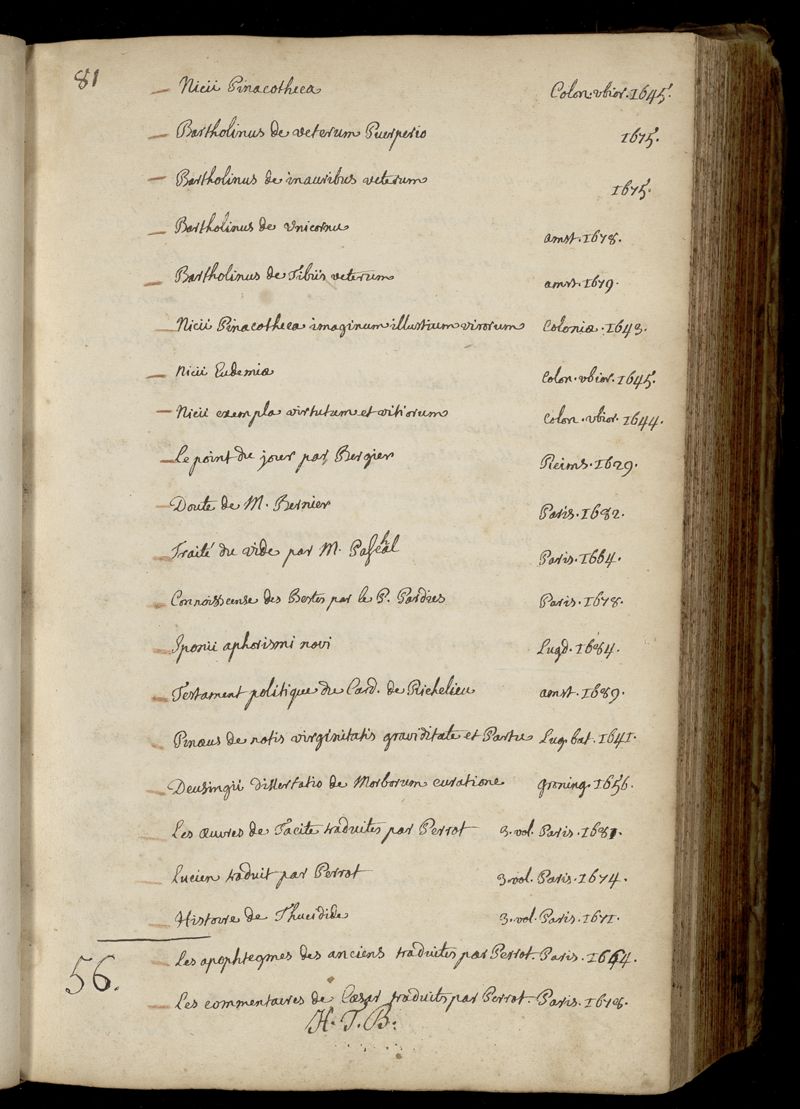 81
Nicii Pinacotheca Colon. vbior. 1645.
Bartholinus de veterum Puerperio 1675.
Bartholinus de inauribus veterum 1675.
Bartholinus de Vnicornu amst. 1678.
Bartholinus de Tibiis veterum amst. 1679.
Nicii Pinacotheca imaginum illustrium virorum Coloniæ. 1643.
Nicii Eudemia Colon. vbior. 1645.
Nicii exempla virtutum et vitiorum Colon. vbior. 1644.
Le point du jour par Bergier Reims. 1629.
Doute de M. Bernier Paris. 1682.
Traité du vide par M. Paschal Paris. 1664.
Connoissense des Bestes par le P. Pardies Paris. 1678.
Iponii aphorismi novi Lugd. 1684.
Testament politique du Card. de Richelieu amst. 1689.
Pinæus de notis virginitatis graviditate et Partu Lug. bat. 1641.
Deusingii dissertatio de Morborum curatione groning. 1656.
Les œuvres de Tacite traduites par Perrot 3. vol. Paris. 1681.
Lucien traduit par Perrot 3. vol. Paris. 1674.
Histoire de Thucidide 3. vol. Paris. 1671.
56. Les apophtegmes des anciens traduites par Perrot. Paris. 1664.
Les commentaires de Cæsar traduits par Perrot. Paris. 1678.
H. T. B: